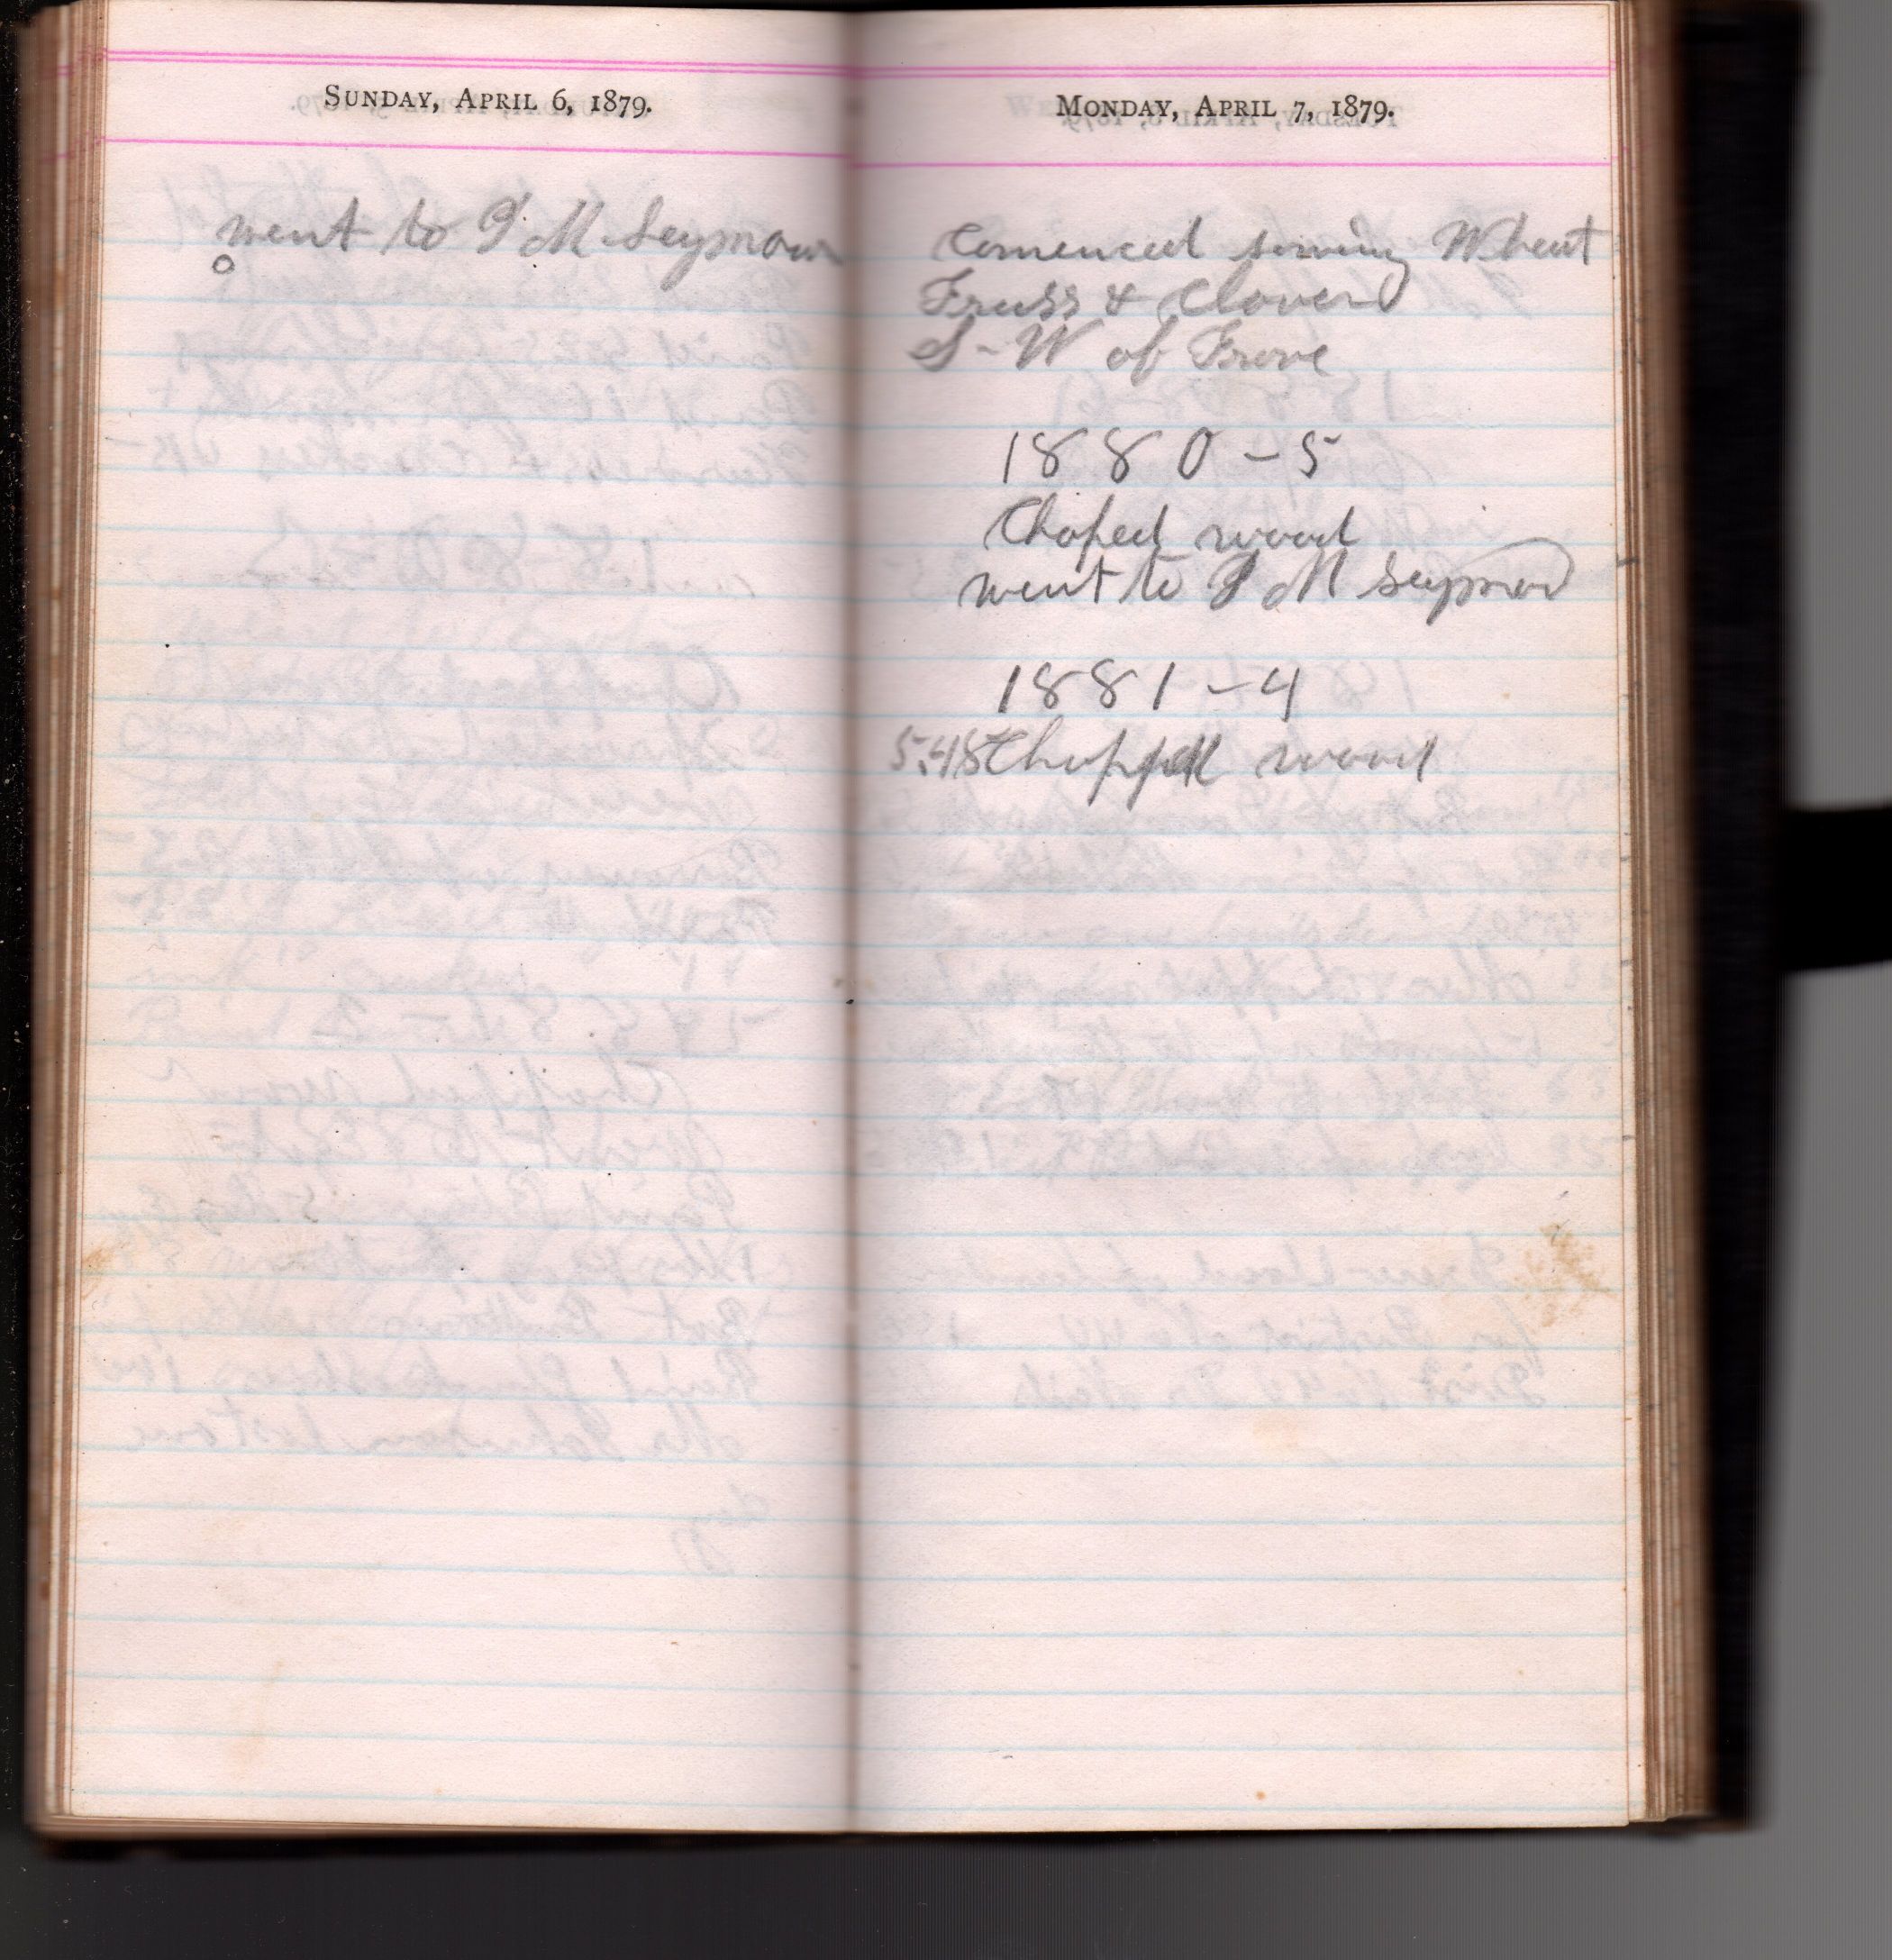 SUNDAY, APRIL 6, 1879.
went to I M Seymour
MONDAY, APRIL 7, 1879.
Comenced sowing Wheat
Grass & Clover
S-W of Grove
1880-5
Choped wood
went to I M Seymour
1881-4
5.45 Chopped wood